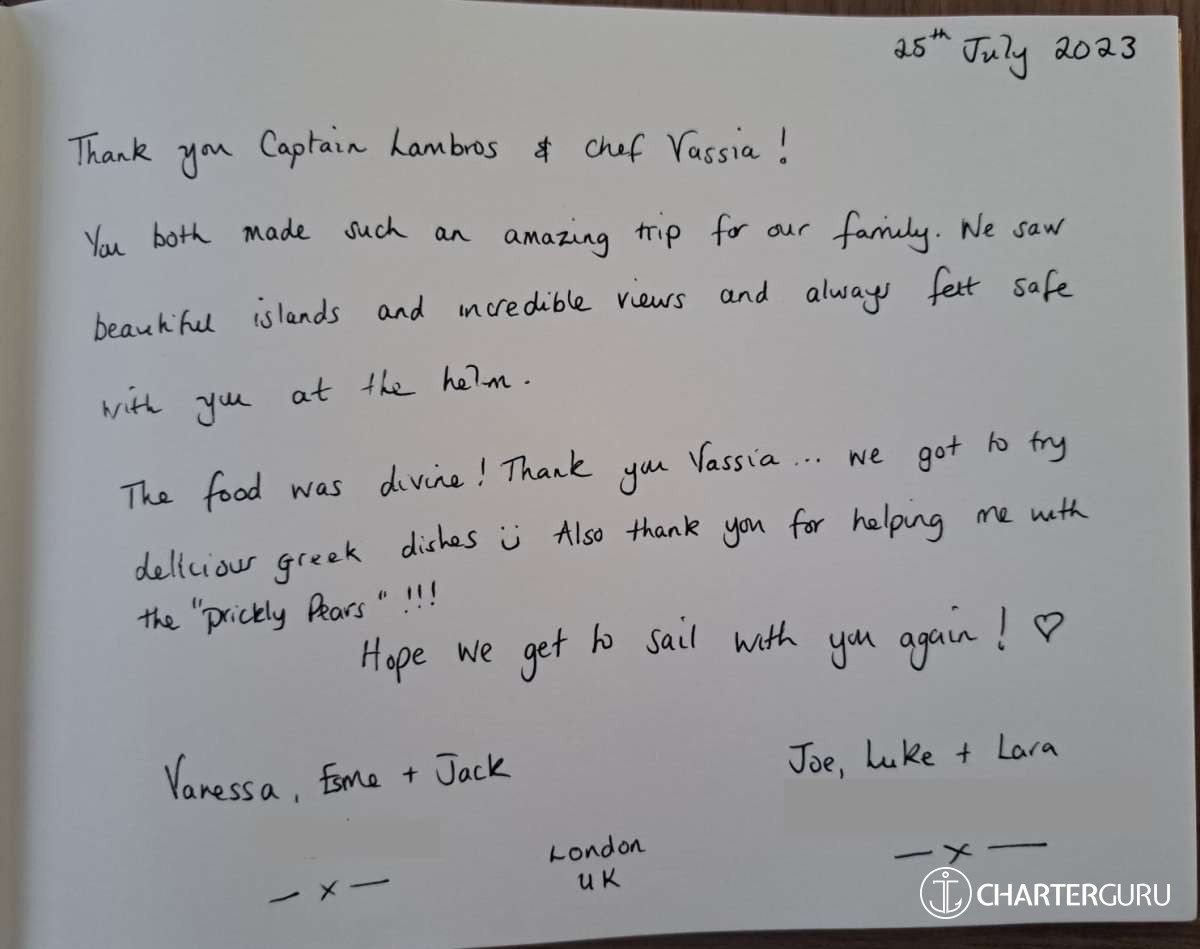 25th July 2023
Thank you Captain Lambros & chef Vassia!
You both made such an amazing trip for our family. We saw
beautiful islands and incredible views and always felt safe
with you at the helm.
The food was divine! Thank you Vassia... we got to try
delicious greek dishes ü Also thank you for helping me with
the "prickly Pears" !!!
Hope we get to sail with you again! ♡
Vanessa, Esme + Jack
Joe, Luke + Lara
London
UK
— x —
— x —
CHARTERGURU